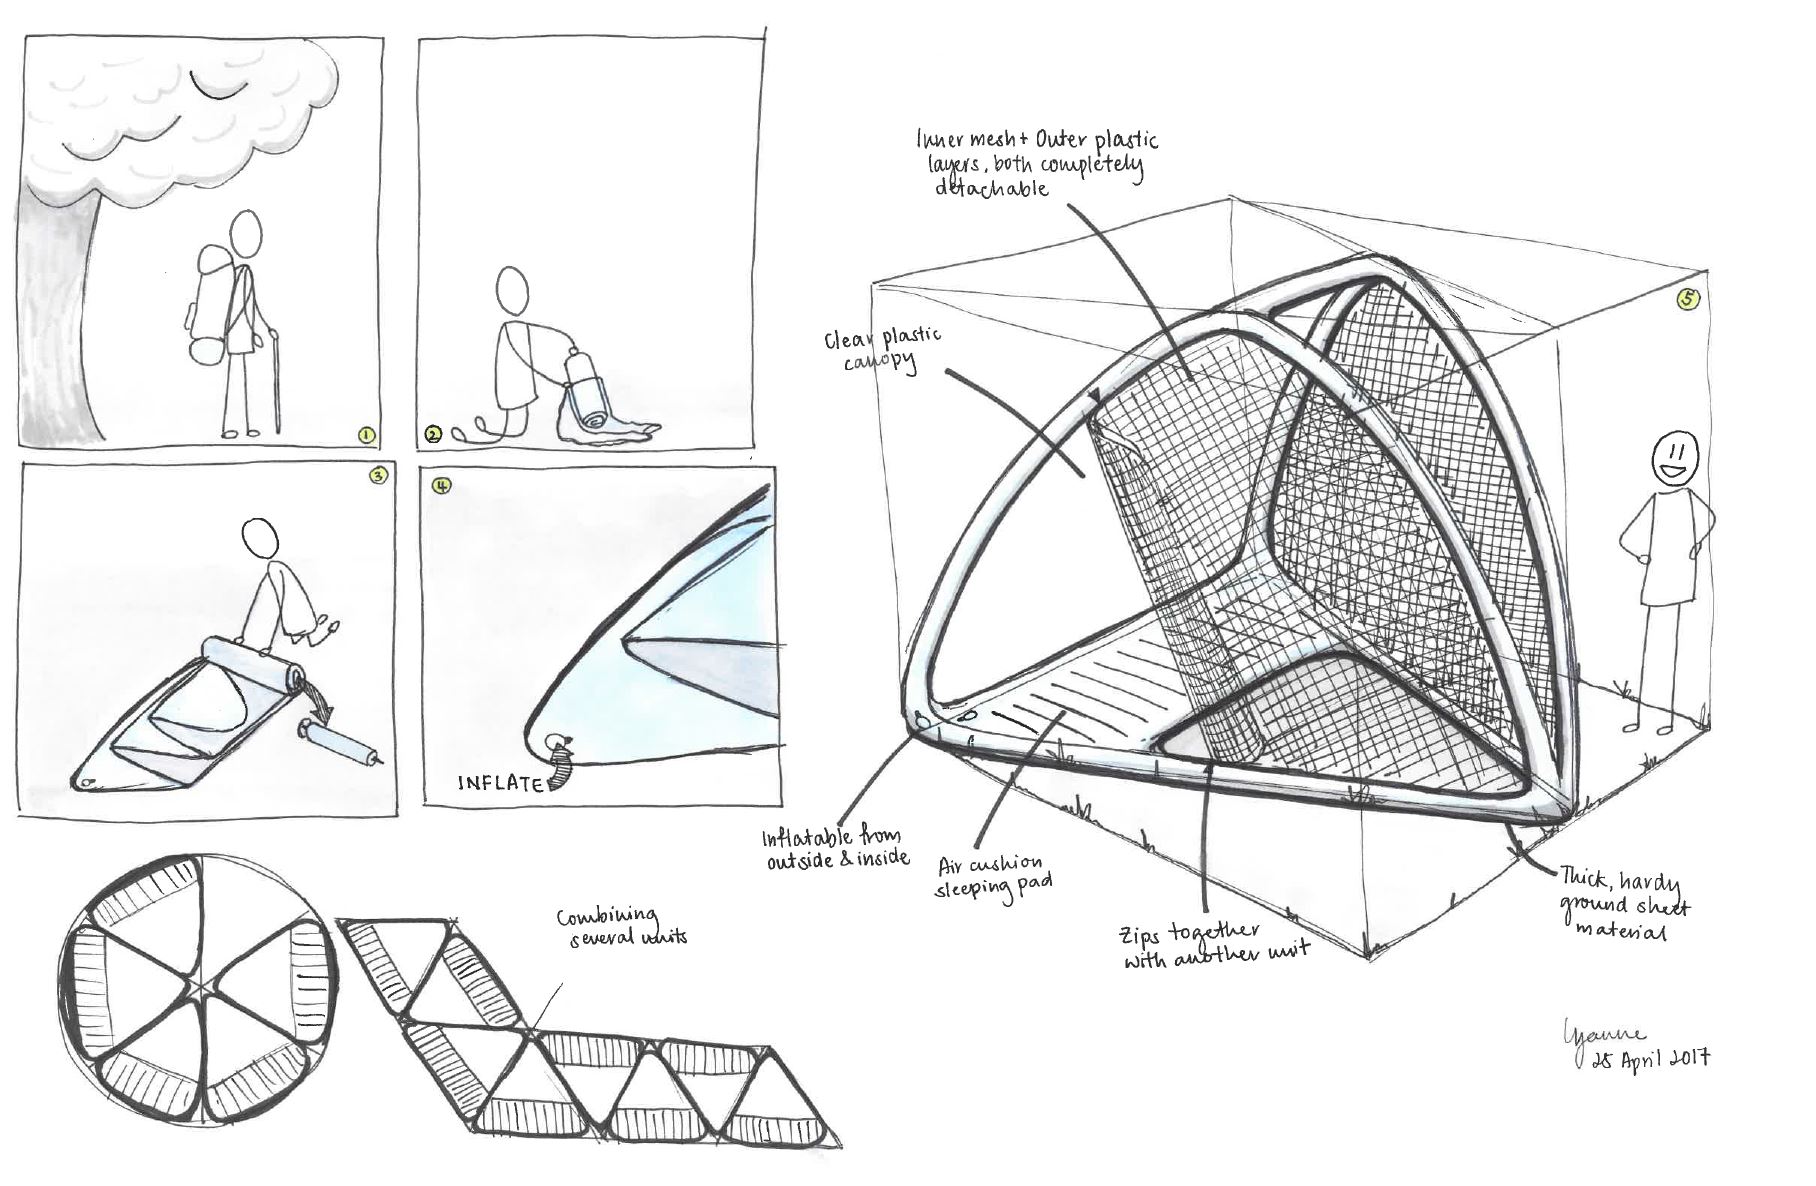 1
2
3
4
INFLATE
Inner mesh + Outer plastic
layers, both completely
detachable
Clear plastic
canopy
5
Inflatable from
outside & inside
Air cushion
sleeping pad
Zips together
with another unit
Thick, hardy
ground sheet
material
Combining
several units
25 April 2017